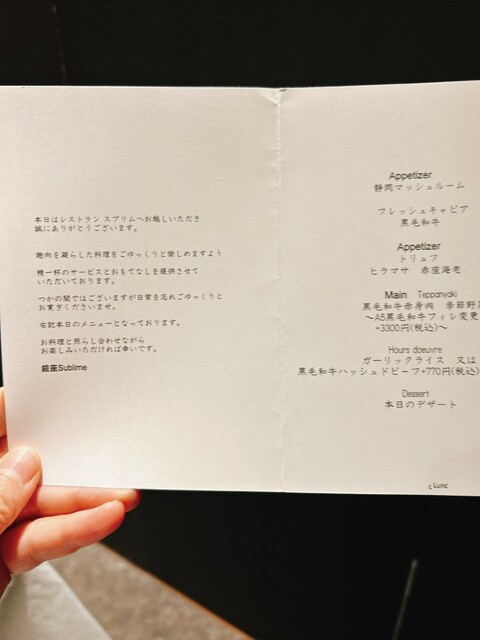 本日はレストラン スブリムへお越しいただき
誠にありがとうございます。
趣向を凝らした料理をごゆっくりと愉しめますよう
精一杯のサービスとおもてなしを提供させて
いただいております。
つかの間ではございますが日常を忘れごゆっくりと
お寛ぎくださいませ。
右記本日のメニューとなっております。
お料理と照らし合わせながら
お楽しみいただければ幸いです。
銀座Sublime
Appetizer
静岡マッシュルーム
フレッシュキャビア
黒毛和牛
Appetizer
トリュフ
ヒラマサ 赤座海老
Main Teppanyaki
黒毛和牛赤身肉 季節野
～A5黒毛和牛フィレ変更
+3300円(税込)～
Hours doeuvre
ガーリックライス 又は
黒毛和牛ハッシュドビーフ+770円(税込)
Dessert
本日のデザート
c Lunc